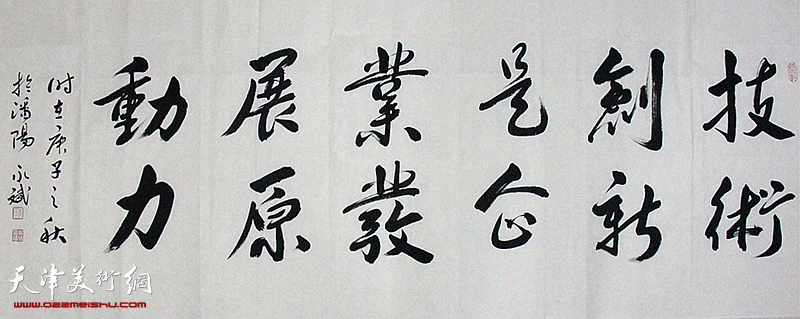 技術
創新
是企
業發
展原
動力
时在庚子之秋
於瀋陽 永斌
天津美術網
www.022meishu.com